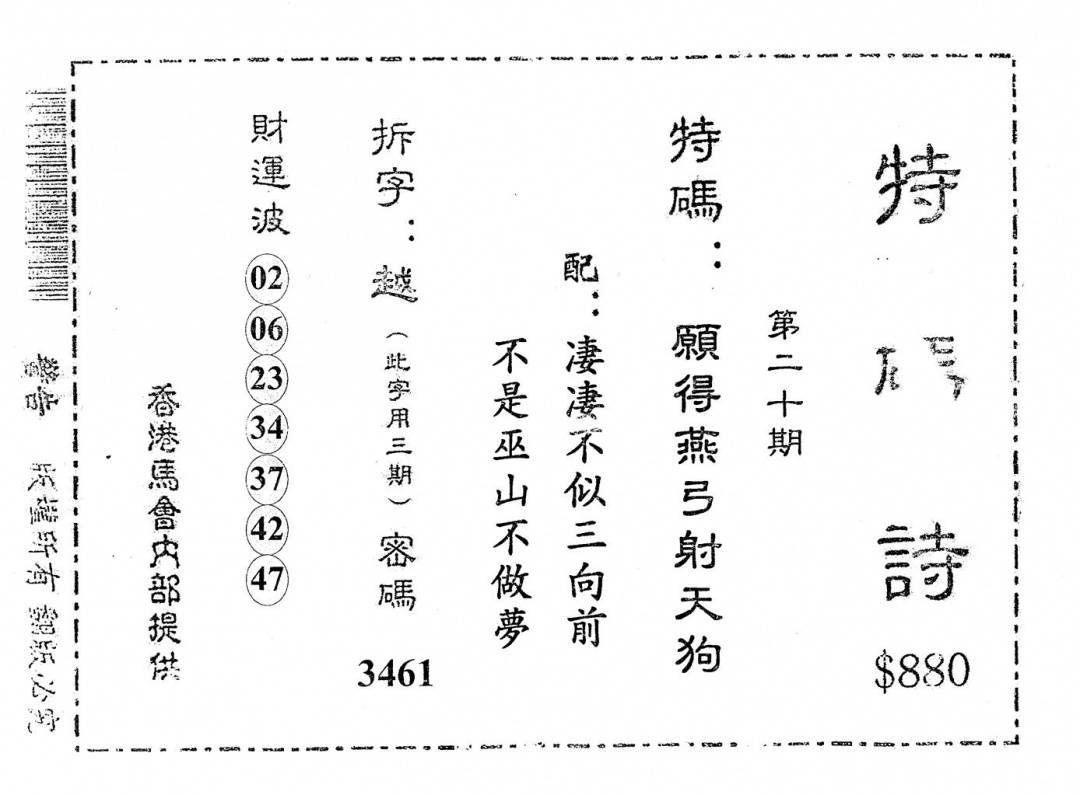 特碼詩
$880
第二十期
特碼：願得燕弓射天狗
配：凄凄不似三向前
不是巫山不做夢
拆字：越（此字用三期）密碼
3461
財運波 02 06 23 34 37 42 47
香港馬會內部提供
警告 版權所有 翻版必究